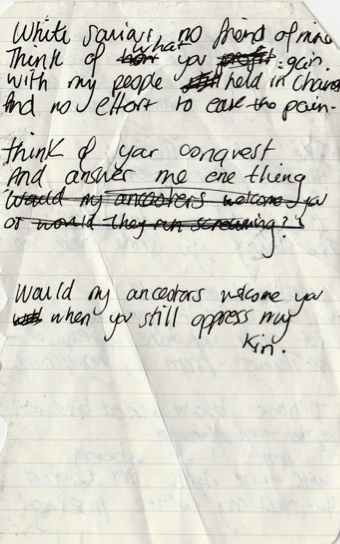 White saviour, no friend of mine
Think of how what you profit gain
with my people held in chains
And no effort to ease the pain-
think of your conquest
And answer me one thing
Would my ancestors welcome you
or would they run screaming?
Would my ancestors welcome you
when you still oppress my
kin.